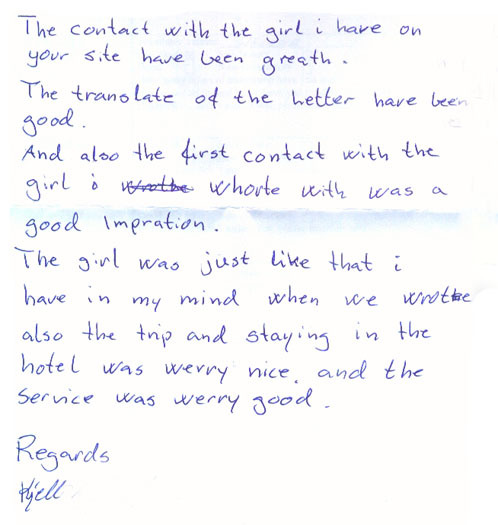 The contact with the girl i have on
your site have been greath.
The translate of the hetter have been
good.
And also the first contact with the
girl i whorte with was a
good Impration.
The girl was just like that i
have in my mind when we wrothe
also the trip and staying in the
hotel was werry nice, and the
Service was werry good.
Regards
Kjell